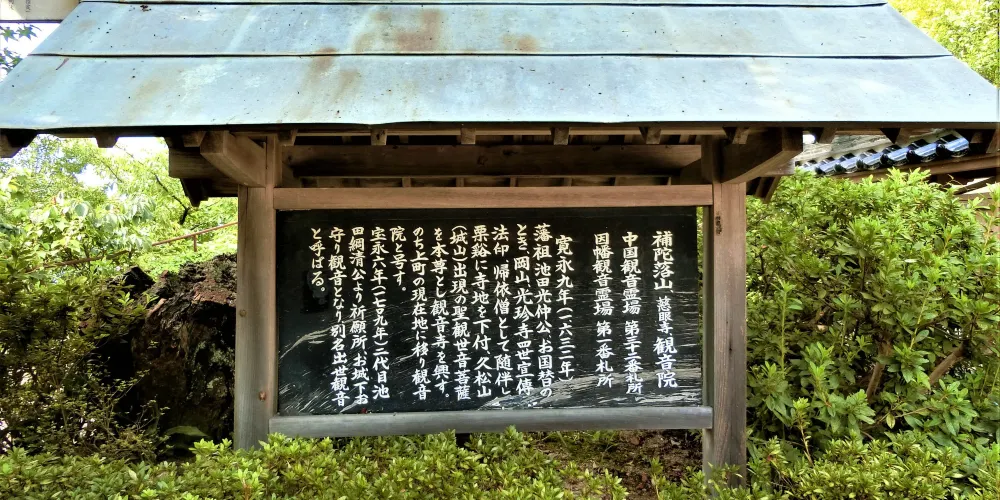 補陀落山 慈眼寺 観音院
中国観音霊場 第三十二番札所
因幡観音霊場 第一番札所
寛永九年(一六三二年)
藩祖池田光仲公、お国替の
とき、岡山光珍寺四世宣傳
法印 帰依僧として随伴し
栗谿に寺地を下付、久松山
(城山)出現の聖観世音菩薩
を本尊とし観音寺を興す。
のち上町の現在地に移り観音
院と号す。
宝永六年(一七〇九年)二代目池
田綱清公より祈願所 お城下お
守り観音となり別名出世観音
と呼ばる。